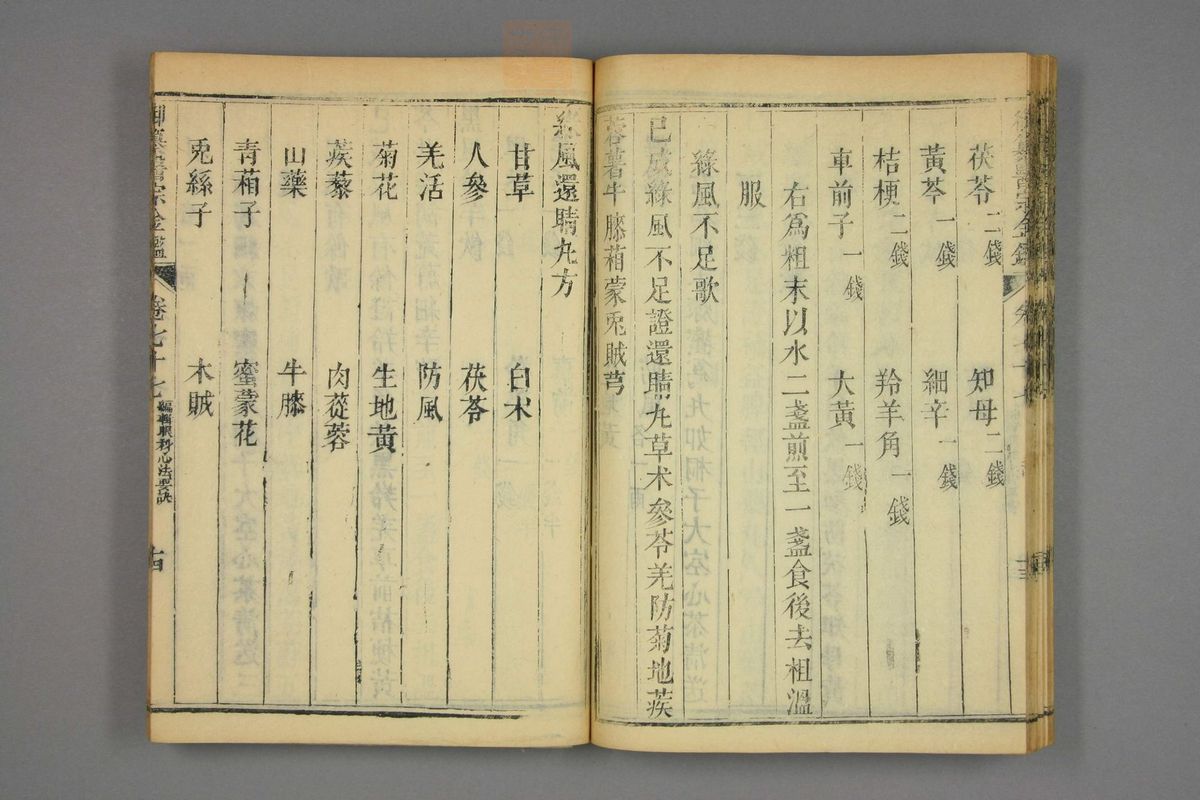 茯苓二錢 知母二錢
黃芩一錢 細辛一錢
桔梗二錢 羚羊角一錢
車前子一錢 大黃一錢
右爲粗末以水二盞煎至一盞食後去柤溫
服
綠風不足歌
已成綠風不足證還睛丸草术參苓羌防菊地蒺
蓉薯牛膝葙蒙兎賊芎
綠風還睛丸方
甘草 白术
人參 茯苓
羌活 防風
菊花 生地黃
蒺藜 肉蓯蓉
山藥 牛膝
青葙子 蜜蒙花
兎絲子 木賊
御纂醫宗金鑑 卷七十七 編輯眼科心法要訣 十四